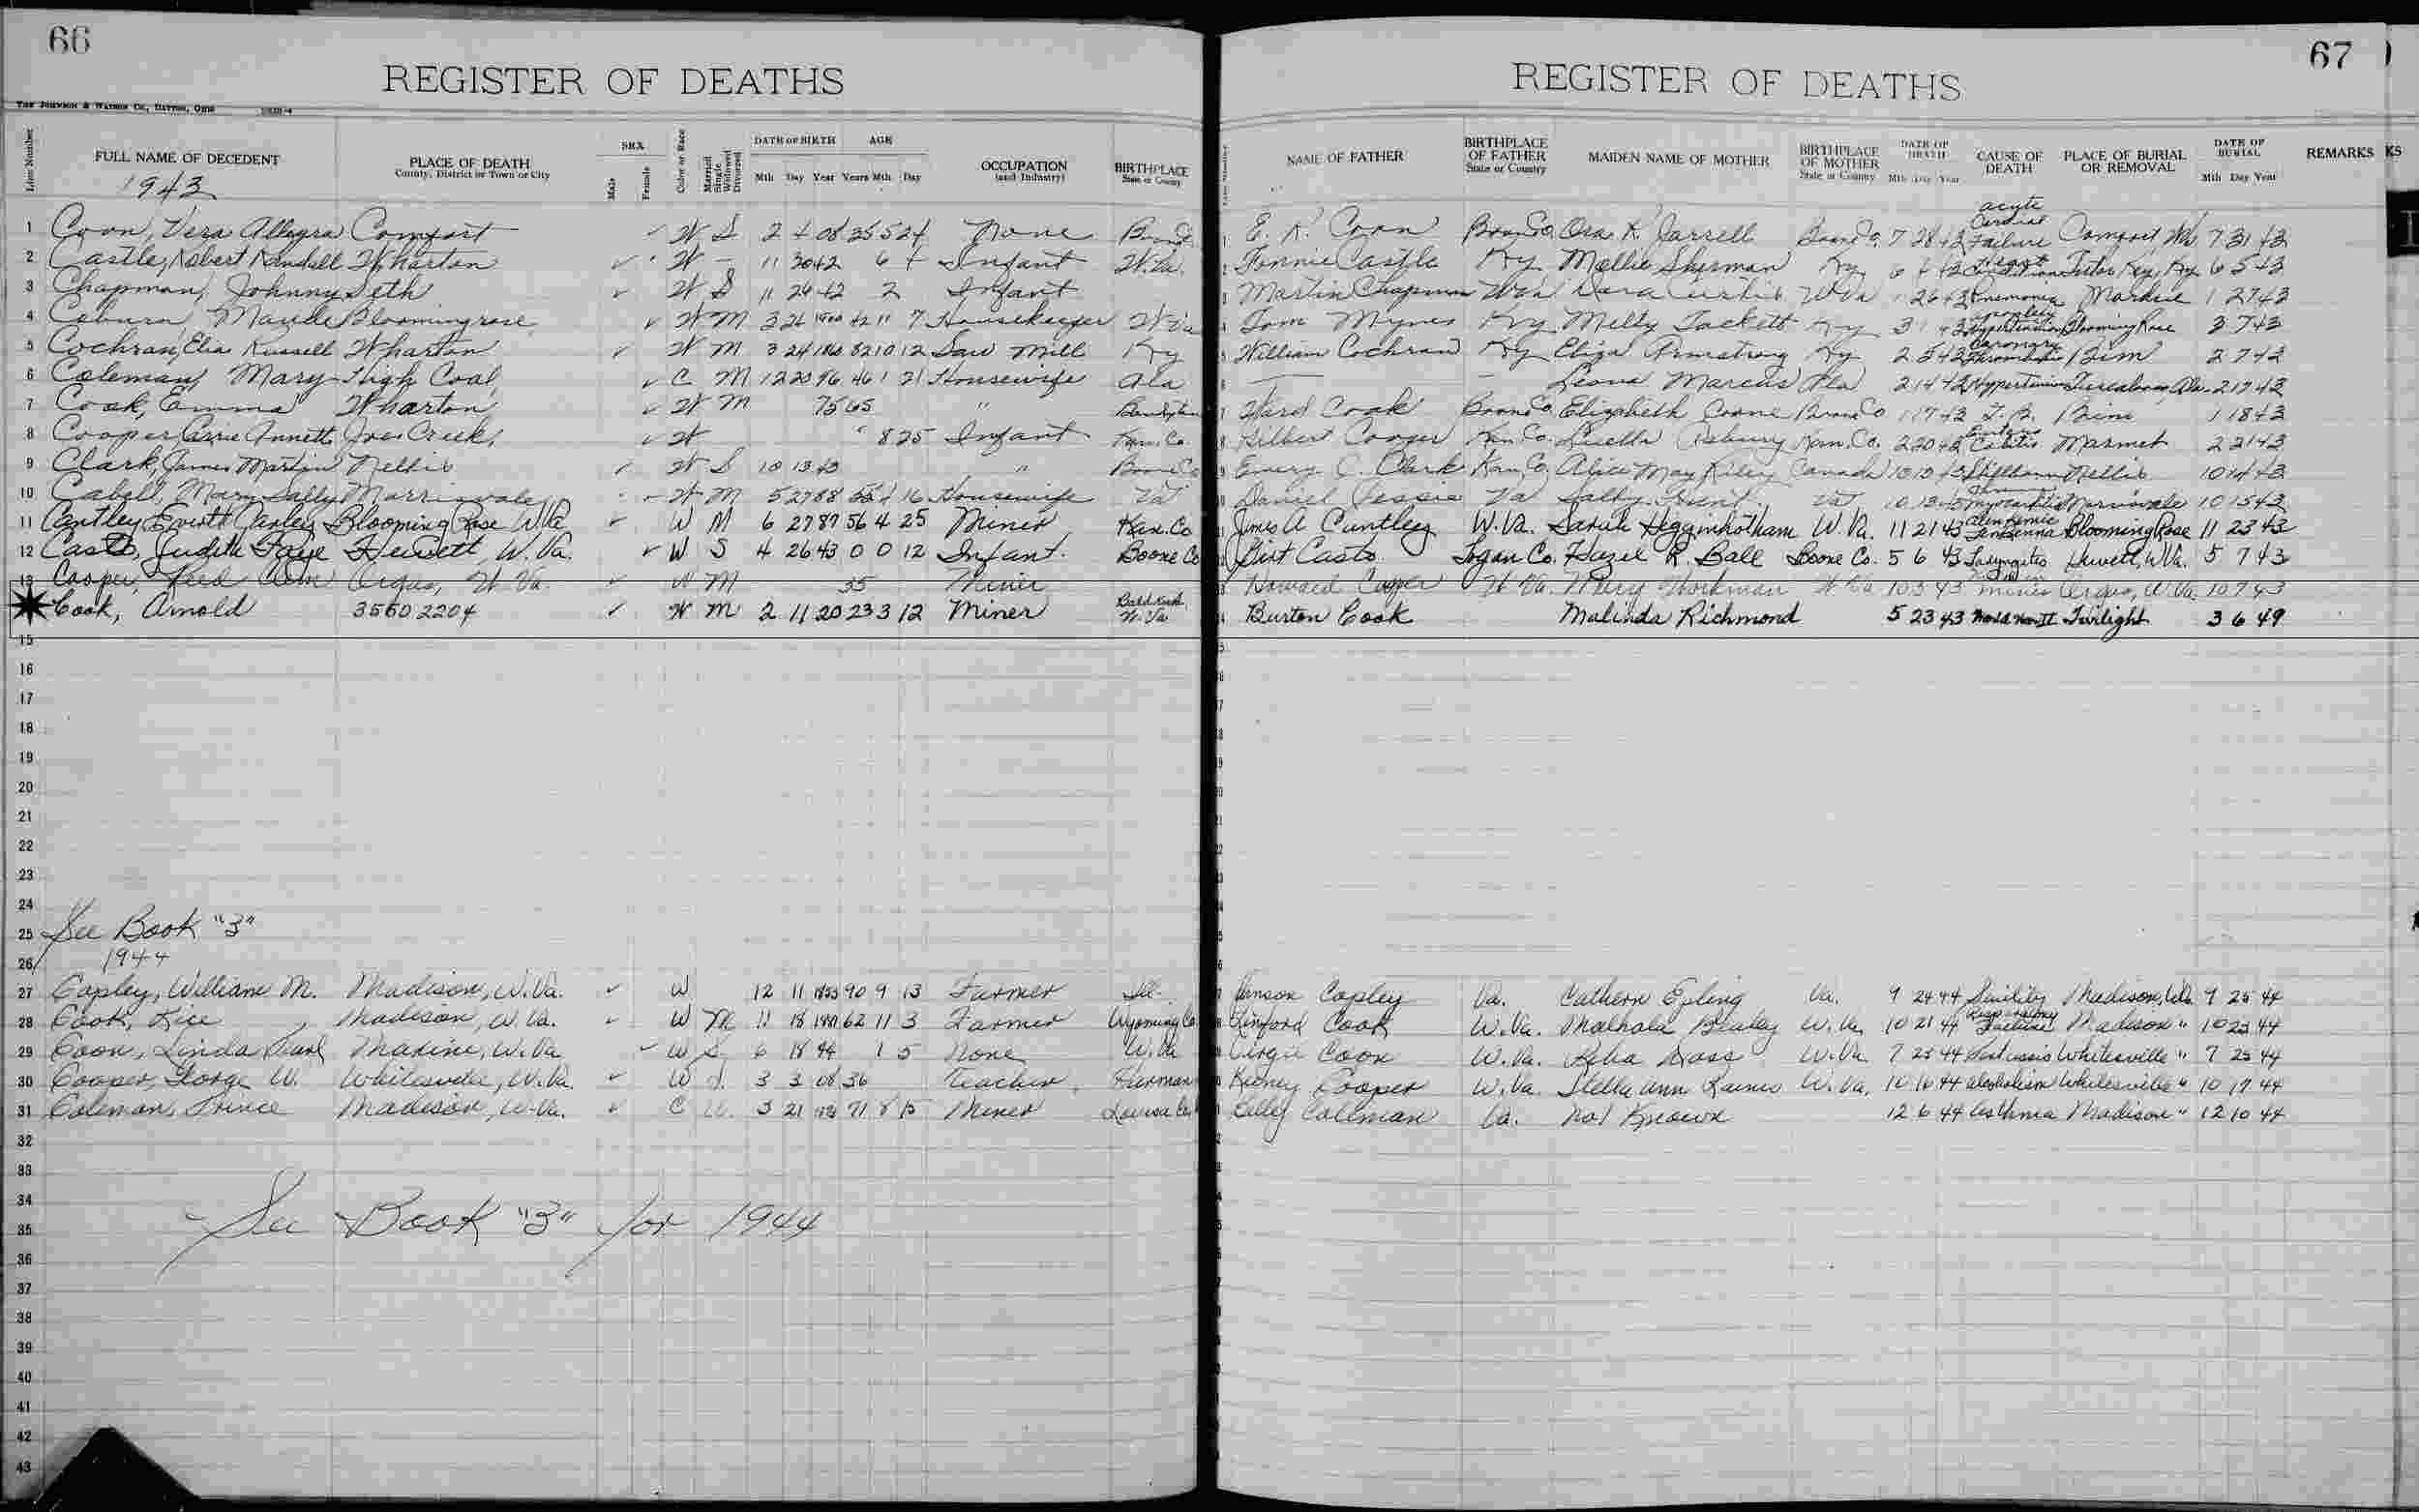 66
REGISTER OF DEATHS
THE JOHNSON & WATSON CO., DAYTON, OHIO
Line Number
FULL NAME OF DECEDENT
PLACE OF DEATH
County, District or Town or City
SEX
Male
Female
Color or Race
Married
Single
Widowed
Divorced
DATE OF BIRTH
Mth Day Year
AGE
Years Mth Day
OCCUPATION
(and Industry)
BIRTHPLACE
State or County
1943
1 Coon, Vera Allegra Comfort W S 2 4 08 35 5 24 None
2 Castle, Robert Randall Wharton W - 11 30 42 6 4 Infant W.Va.
3 Chapman, Johnny Seth W S 11 24 42 2 Infant
4 Coburn, Maude Bloomingrose W M 3 26 1900 42 11 7 Housekeeper W.Va
5 Cochran, Elia Russell Wharton W M 3 24 82 10 12 Saw Mill Ky
6 Coleman, Mary High Coal, C M 12 20 96 46 1 21 Housewife Ala
7 Cook, Emma Wharton, W M 75 65 "
8 Cooper, Carrie Annett Joes Creek, W 8 25 Infant Kan. Co.
9 Clark, James Martin Nellis W S 10 13 43 " Boone Co
10 Cabell, Mary Sally Morrisvale W M 5 27 88 16 Housewife Va
11 Cantley, Jarley Blooming Rose W.Va W M 6 27 87 56 4 25 Miner Kan. Co
12 Casto, Judith Faye Hewett, W. Va. W S 4 26 43 0 0 12 Infant. Boone Co
13 Cooper, Reed W. Va. W M 35 Miner
14 Cook, Arnold 35602204 W M 2 11 20 23 3 12 Miner W. Va
15
16
17
18
19
20
21
22
23
24
25 See Book "3"
26 1944
27 Copley, William M. Madison, W.Va. W 12 11 90 9 13 Farmer
28 Cook, Rice Madison, W.Va. W M 11 18 62 11 3 Farmer Wyoming Co
29 Coon, Linda Pearl W.Va W S 6 18 44 1 5 None W.Va
30 Cooper, George W. Whitesville, W.Va. W S. 3 3 08 36 Teacher
31 Coleman, Prince Madison, W.Va. C 3 21 71 8 15 Miner
32
33
34
35 See Book "3" for 1944
36
37
38
39
40
41
42
43
67
REGISTER OF DEATHS
NAME OF FATHER
BIRTHPLACE
OF FATHER
State or Country
MAIDEN NAME OF MOTHER
BIRTHPLACE
OF MOTHER
State or Country
DATE OF
DEATH
Mth Day Year
CAUSE OF
DEATH
PLACE OF BURIAL
OR REMOVAL
DATE OF
BURIAL
Mth Day Year
REMARKS
KS
E. K. Coon Boone Co. Ora K. Jarrell Boone Co. 7 28 43 acute Cardiac Failure Comfort 7 31 43
Castle Ky Mollie Sherman Ky 6 4 43 Ky 6 5 43
Martin Chapman W Va W Va 1 26 43 Pneumonia 1 27 43
Tom Mynes Ky Milly Tackett Ky 3 43 Hypertension Blooming Rose 3 7 43
William Cochran Ky Eliza Armstrong Ky 2 5 43 Coronary Thrombosis Bim 2 7 43
Leona Marcus Ala 2 14 43 Hypertension Tuscaloosa, Ala. 2 17 43
Ward Cook Boone Co. Elizabeth Boone Co 1 17 43 T.B. Bim 1 18 43
Gilbert Cooper Kan. Co. Luella Asbury Kan. Co. 2 20 43 Colitis Marmet 2 21 43
Emery C. Clark Kan Co. Alice May Riley Canada 10 13 43 Stillborn Nellis 10 14 43
Daniel Va Sally Hunt Va 10 13 43 Morrisvale 10 15 43
James A Cantley W.Va. Sarah Higginbotham W. Va. 11 21 43 Blooming Rose 11 23 43
Casto Logan Co. Hazel R. Ball Boone Co. 5 6 43 Hewett, W.Va. 5 7 43
Howard Cooper W Va. Mary Workman W Va 10 5 43 W. Va. 10 7 43
Burton Cook Malinda Richmond 5 23 43 World War II Twilight 3 6 49
Copley Va. Cathern Epling Va. 9 24 44 Senility Madison, W.Va. 9 25 44
Cook W.Va. W.Va. 10 21 44 Failure Madison " 10 23 44
Virgie Coon W.Va. W.Va 7 23 44 Pertussis Whitesville " 7 25 44
Cooper W.Va. Stella Ann W.Va. 10 16 44 alcoholism Whitesville " 10 17 44
Coleman Va. Not Known 12 6 44 Asthma Madison " 12 10 44